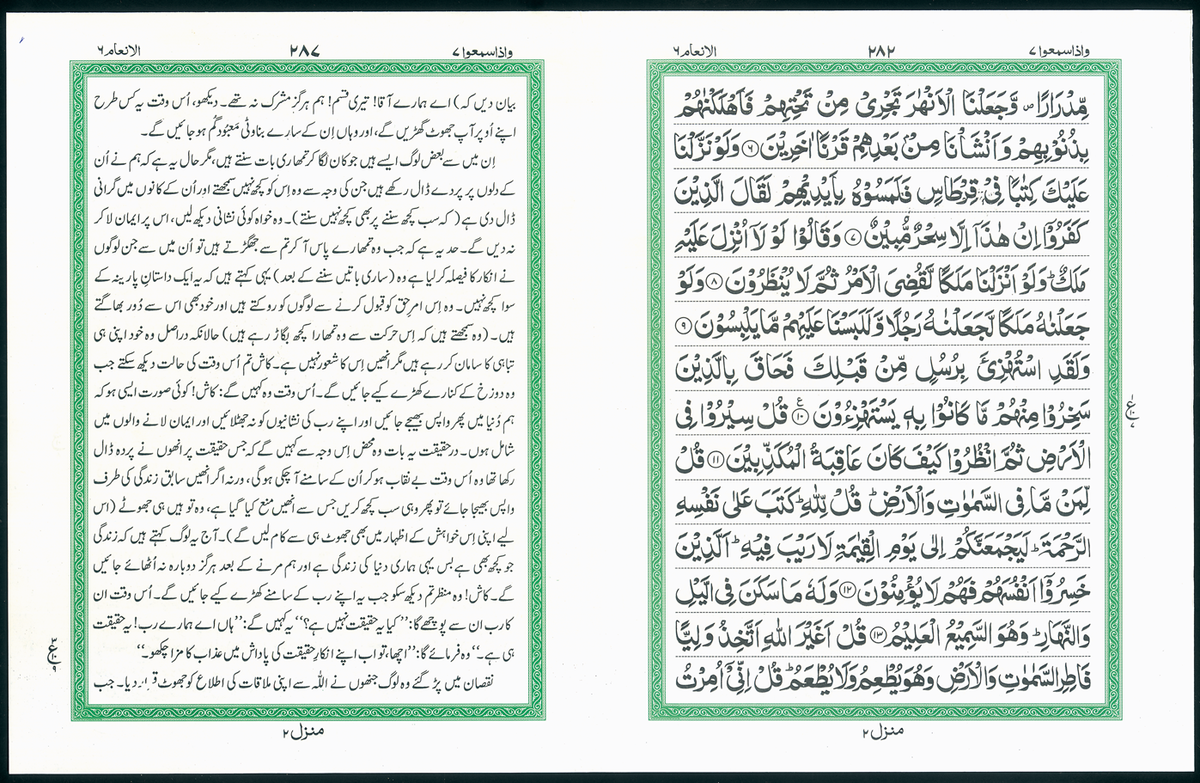 واذاسمعوا ۷
۲۸۲
الانعام ۶
مِّدْرَارًا ۪ وَّجَعَلْنَا الْاَنْهٰرَ تَجْرِیْ مِنْ تَحْتِهِمْ فَاَهْلَكْنٰهُمْ
بِذُنُوْبِهِمْ وَاَنْشَاْنَا مِنْۢ بَعْدِهِمْ قَرْنًا اٰخَرِیْنَ ۶ وَلَوْ نَزَّلْنَا
عَلَیْكَ كِتٰبًا فِیْ قِرْطَاسٍ فَلَمَسُوْهُ بِاَیْدِیْهِمْ لَقَالَ الَّذِیْنَ
كَفَرُوْۤا اِنْ هٰذَاۤ اِلَّا سِحْرٌ مُّبِیْنٌ ۷ وَقَالُوْا لَوْ لَاۤ اُنْزِلَ عَلَیْهِ
مَلَكٌ ؕ وَلَوْ اَنْزَلْنَا مَلَكًا لَّقُضِیَ الْاَمْرُ ثُمَّ لَا یُنْظَرُوْنَ ۸ وَلَوْ
جَعَلْنٰهُ مَلَكًا لَّجَعَلْنٰهُ رَجُلًا وَّلَلَبَسْنَا عَلَیْهِمْ مَّا یَلْبِسُوْنَ ۹
وَلَقَدِ اسْتُهْزِئَ بِرُسُلٍ مِّنْ قَبْلِكَ فَحَاقَ بِالَّذِیْنَ
سَخِرُوْا مِنْهُمْ مَّا كَانُوْا بِهٖ یَسْتَهْزِءُوْنَ ۱۰ ع قُلْ سِیْرُوْا فِی
الْاَرْضِ ثُمَّ انْظُرُوْا كَیْفَ كَانَ عَاقِبَةُ الْمُكَذِّبِیْنَ ۱۱ قُلْ
لِّمَنْ مَّا فِی السَّمٰوٰتِ وَالْاَرْضِ ؕ قُلْ لِّلّٰهِ ؕ كَتَبَ عَلٰی نَفْسِهِ
الرَّحْمَةَ ؕ لَیَجْمَعَنَّكُمْ اِلٰی یَوْمِ الْقِیٰمَةِ لَا رَیْبَ فِیْهِ ؕ اَلَّذِیْنَ
خَسِرُوْۤا اَنْفُسَهُمْ فَهُمْ لَا یُؤْمِنُوْنَ ۱۲ وَلَهٗ مَا سَكَنَ فِی الَّیْلِ
وَالنَّهَارِ ؕ وَهُوَ السَّمِیْعُ الْعَلِیْمُ ۱۳ قُلْ اَغَیْرَ اللّٰهِ اَتَّخِذُ وَلِیًّا
فَاطِرِ السَّمٰوٰتِ وَالْاَرْضِ وَهُوَ یُطْعِمُ وَلَا یُطْعَمُ ؕ قُلْ اِنِّیْۤ اُمِرْتُ
منزل ۲
واذاسمعوا ۷
۲۸۷
الانعام ۶
بیان دیں کہ) اے ہمارے آقا! تیری قسم! ہم ہرگز مشرک نہ تھے۔ دیکھو، اُس وقت یہ کس طرح
اپنے اُوپر آپ جھوٹ گھڑیں گے، اور وہاں اِن کے سارے بناوٹی معبُود گُم ہو جائیں گے۔
اِن میں سے بعض لوگ ایسے ہیں جو کان لگا کر تمھاری بات سنتے ہیں، مگر حال یہ ہے کہ ہم نے اُن
کے دلوں پر پردے ڈال رکھے ہیں جن کی وجہ سے وہ اِس کو کچھ نہیں سمجھتے اور اُن کے کانوں میں گرانی
ڈال دی ہے (کہ سب کچھ سننے پر بھی کچھ نہیں سنتے)۔ وہ خواہ کوئی نشانی دیکھ لیں، اس پر ایمان لا کر
نہ دیں گے۔ حد یہ ہے کہ جب وہ تمھارے پاس آ کر تم سے جھگڑتے ہیں تو اُن میں سے جن لوگوں
نے انکار کا فیصلہ کر لیا ہے وہ (ساری باتیں سننے کے بعد) یہی کہتے ہیں کہ یہ ایک داستانِ پارینہ کے
سوا کچھ نہیں۔ وہ اِس امرِ حق کو قبول کرنے سے لوگوں کو روکتے ہیں اور خود بھی اس سے دُور بھاگتے
ہیں۔ (وہ سمجھتے ہیں کہ اِس حرکت سے وہ تمھارا کچھ بگاڑ رہے ہیں) حالانکہ دراصل وہ خود اپنی ہی
تباہی کا سامان کر رہے ہیں مگر انھیں اِس کا شعور نہیں ہے۔ کاش تم اُس وقت کی حالت دیکھ سکتے جب
وہ دوزخ کے کنارے کھڑے کیے جائیں گے۔ اُس وقت وہ کہیں گے: کاش! کوئی صورت ایسی ہو کہ
ہم دُنیا میں پھر واپس بھیجے جائیں اور اپنے رب کی نشانیوں کو نہ جھٹلائیں اور ایمان لانے والوں میں
شامل ہوں۔ درحقیقت یہ بات وہ محض اِس وجہ سے کہیں گے کہ جس حقیقت پر انھوں نے پردہ ڈال
رکھا تھا وہ اُس وقت بے نقاب ہو کر اُن کے سامنے آ چکی ہوگی، ورنہ اگر انھیں سابق زندگی کی طرف
واپس بھیجا جائے تو پھر وہی سب کچھ کریں جس سے انھیں منع کیا گیا ہے، وہ تو ہیں ہی جھوٹے (اس
لیے اپنی اِس خواہش کے اظہار میں بھی جھوٹ ہی سے کام لیں گے)۔ آج یہ لوگ کہتے ہیں کہ زندگی
جو کچھ بھی ہے بس یہی ہماری دنیا کی زندگی ہے اور ہم مرنے کے بعد ہرگز دوبارہ نہ اُٹھائے جائیں
گے۔ کاش! وہ منظر تم دیکھ سکو جب یہ اپنے رب کے سامنے کھڑے کیے جائیں گے۔ اُس وقت ان
کا رب ان سے پوچھے گا: ’’کیا یہ حقیقت نہیں ہے؟‘‘ یہ کہیں گے: ’’ہاں اے ہمارے رب! یہ حقیقت
ہی ہے۔‘‘ وہ فرمائے گا: ’’اچھا، تو اب اپنے انکارِ حقیقت کی پاداش میں عذاب کا مزا چکھو۔‘‘
نقصان میں پڑ گئے وہ لوگ جنھوں نے اللہ سے اپنی ملاقات کی اطلاع کو جھوٹ قرار دیا۔ جب
منزل ۲